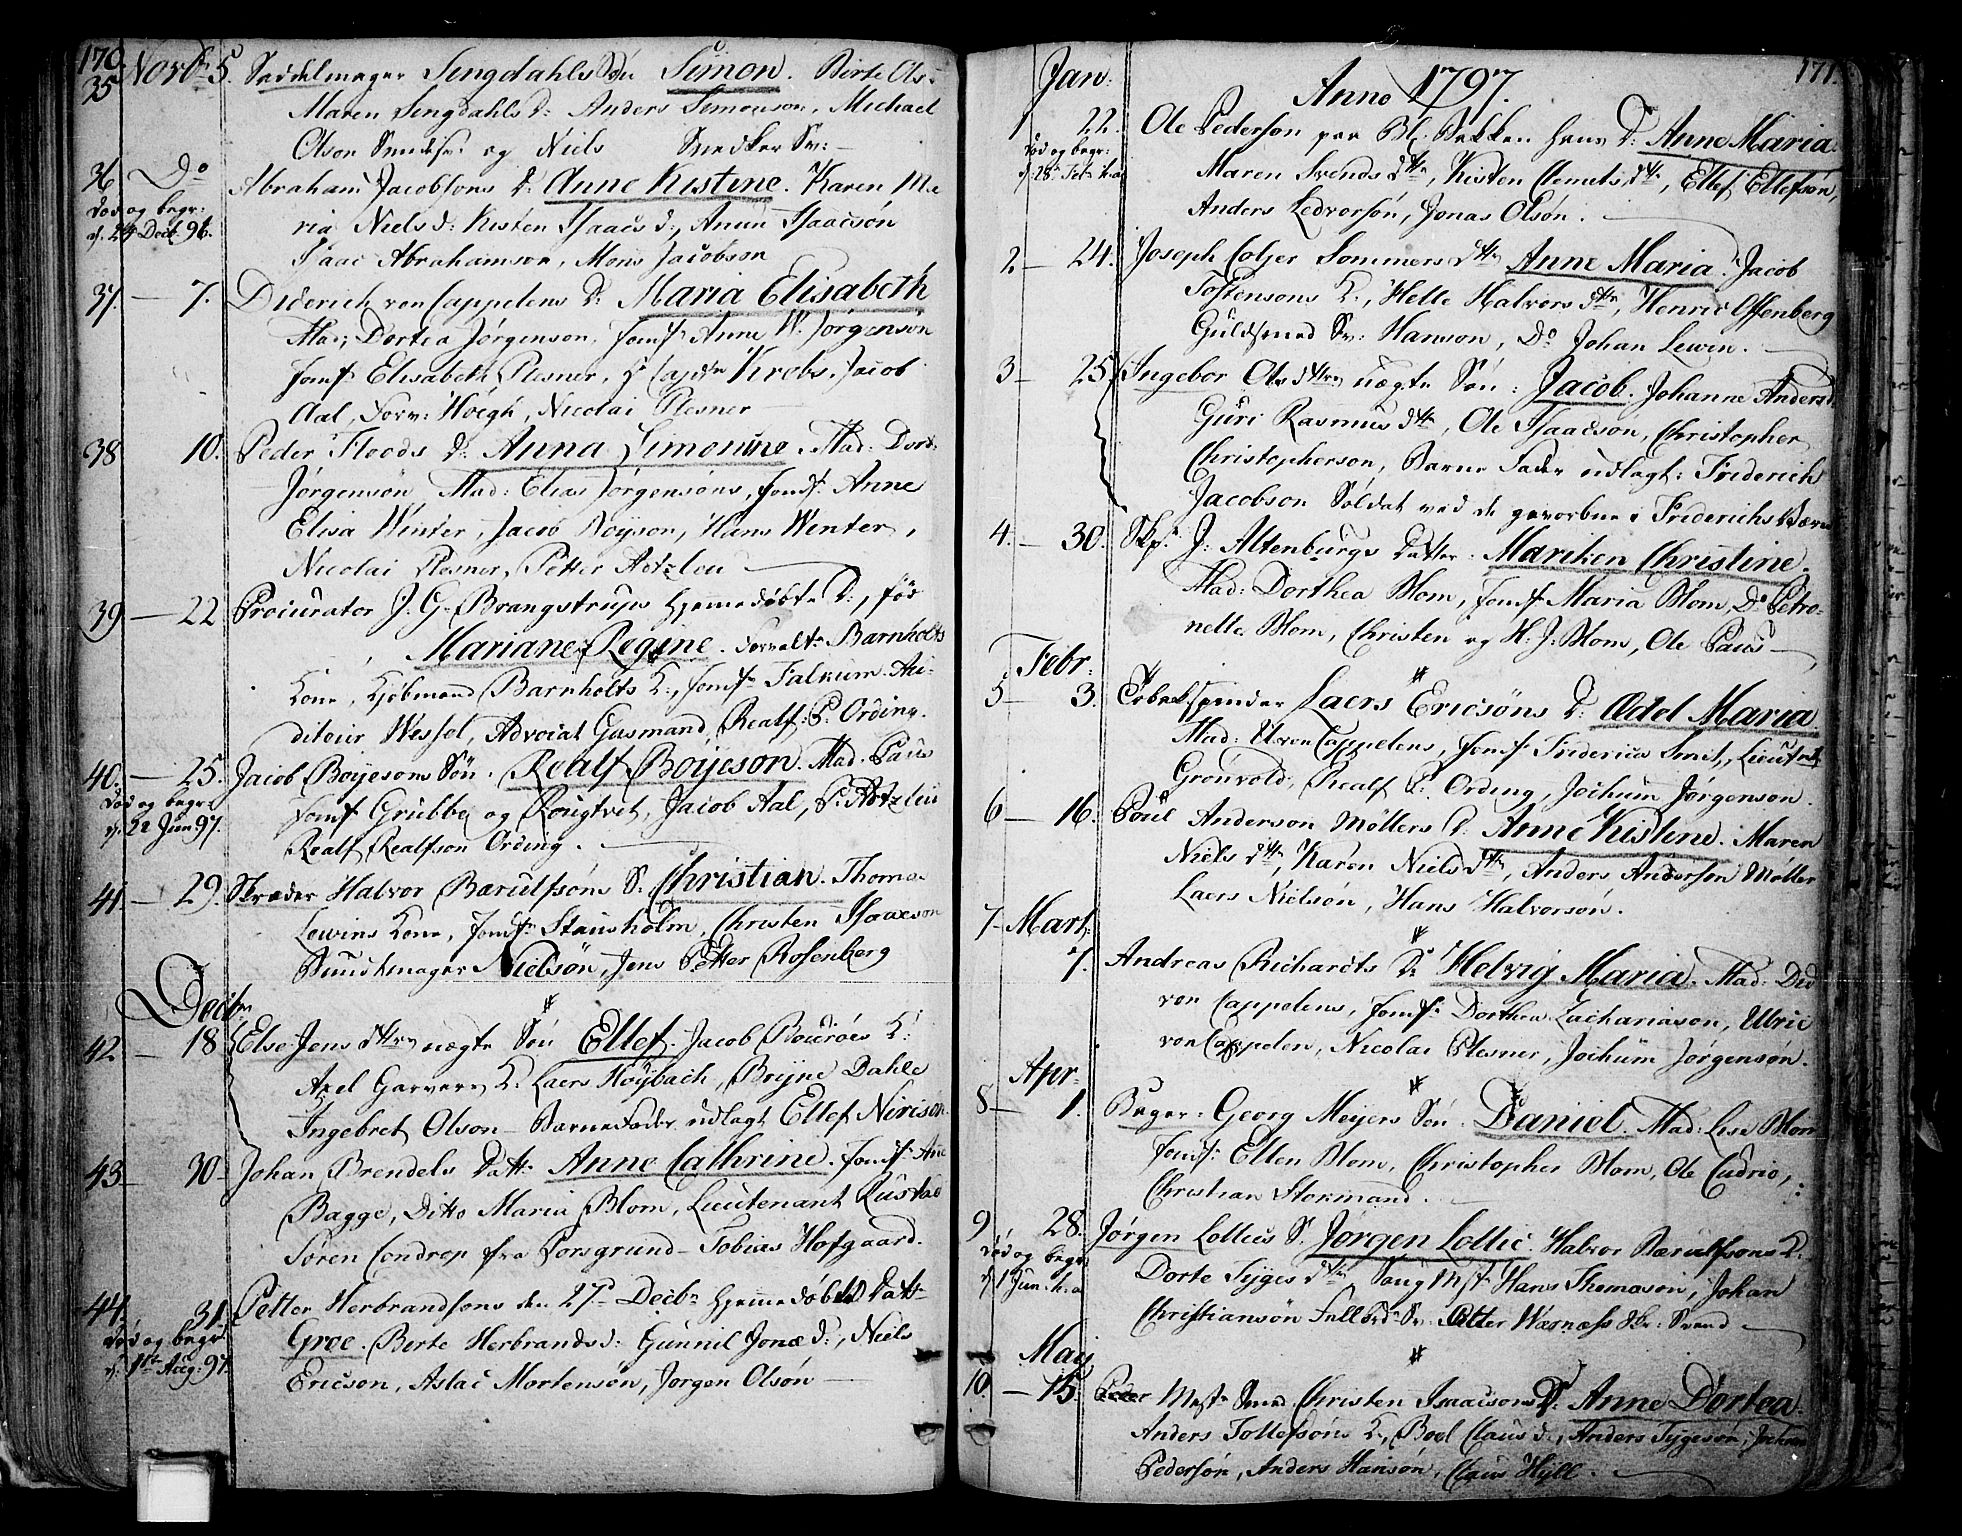 170.
35 Novbr 5. Saddelmager Lengdahls Søn Simon. Birte Ols-
Maren Lengdahls d: Anders Simonson, Michael
Olson og Niels Snedker Sv:
36 Do Abraham Jacobsons D: Anne Kistine. Karen Ma
død og begr:
d. 24 Decb. 96.
ria Niels d: Kisten Isaacs d:, Anun Isaacsøn
Isaac Abrahamson, Mons Jacobson
37. — 7. Diderich von Cappelens D: Maria Elisabeth
Mad; Dortea Jørgenson, Jomf Anne W. Jørgenson
Jomf Elisabeth Plesner, Hr Captn Krebs, Jacob
Aal, Forv: Høegh, Nicolai Plesner
38 10. Peder Floods D: Anna Simonine. Mad: Dort:
Jørgensøn, Mad: Elias Jørgensøns, Jomf: Anne
Elisa Winter, Jacob Boyson, Hans Winter,
Nicolai Plesner, Petter Aetzleu
39 — 22 Procurator J. G. Brangstrups hjemmedøbte D:, før
Mariane Regine. Forvaltr Barnholts
Kone, Kjøbmand Barnholts K:, Jomfr Falkum. Au-
diteur Wessel, Advocat Gasmand, Realf: P. Ording.
40. — 25. Jacob Boyesons Søn. Realf Boyeson. Mad. Paus
død og begr:
d. 22 Jun 97.
Jomf Grubbe og Rougtvet, Jacob Aal, P. Aetzleu
Realf Realfson Ording.
41. — 29. Skræder Halvor Barulfsøns S. Christian. Thomas
Lewins Kone, Jomfr Stensholm, Christen Isaacson
Bundtmager Nielsøn, Jens Petter Rosenberg
Decbr
42 — 18 Else Jens dttrs uægte Søn Ellef. Jacob Bourøes K:
Axel Garvers K. Laers Høybach, Boyne Dahle
Ingebret Olson — Barnefader udlagt Ellef Nirison
43 — 30 Johan Brendels Datt: Anne Cathrine. Jomf Ane
Bagge, Ditto Maria Blom, Lieutenant Rustad
Søren Condrop fra Porsgrund — Tobias Hofgaard.
44. 31. Petter Herbrandsons den 27de Decbr hjemmedøbte Datt:
død og begr:
d. 1ste Aug: 97.
Groe. Berte Herbrandsd: Gunnil Jonæ d:, Niels
Ericson, Aslac Mortenson, Jørgen Olsøn —
171.
Jan: Anno 1797.
1 22. Ole Pederson paa Bl: Bakken hans D: Anne Maria.
død og begr:
d: 28 Feb. h.a
Maren Svends dttr, Kisten Clemets dttr, Ellef Ellefsøn,
Anders Ledvorsøn, Jonas Olsøn.
2 — 24. Joseph Coljer Sommers dttr Anne Maria. Jacob
Tostensons K:, Helle Halvors dttr, Henric Offenberg
Guldsmed Sv: Hanson, Do Johan Lewin.
3 — 25 Ingebor Ols dttrs uægte Søn: Jacob. Johanne Andersd.
Guri Rasmus dttr, Ole Isaacson, Christopher
Christopherson, Barne Fader udlagt: Friderich
Jacobson Soldat ved de gevorbne i Friderichsværn
4. — 30. Skp. J: Altenburgs Datter: Mariken Christine.
Mad: Dorthea Blom, Jomf Maria Blom, Do Petro-
nelle Blom, Christen og H. J: Blom, Ole Paus
Febr:
5 — 3. Tobakspinder Laers Ericsøns D: Ædel Maria
Mad: U von Cappelens, Jomf Friderica Smit, Lieutnt
Grønvold, Realf P: Ording, Jochum Jørgenson.
6 — 16. Poul Anderson Møllers D: Anne Kistine. Maren
Niels dttr, Karen Niels dttr, Anders Anderson Møller
Laers Nielsøn, Hans Halvorsøn.
7 — Mart:
7. Andreas Richardts D: Helvig Maria. Mad: Did
von Cappelens, Jomfr Dorthea Zachariason, Ulric
von Cappelen, Nicolai Plesner, Jochum Jørgensøn.
Apr:
8 — 1. Bager: Georg Meyers Søn. Daniel. Mad: Lise Blom
Jomf: Ellen Blom, Christopher Blom, Ole Cudrio,
Christian Stokmand.
9 28. Jørgen Lollics S. Jørgen Lollic. Halvor Barulfsons K:
død og begr
d. 1 Jun. h.a
Dorte Tyges dttr, Saug Mstr Hans Thomasøn, Johan
Christiansøn Sv: Otter Warnæss Skr: Svend
May
10 — 15. Peder Mestr Smed Christen Isaacsons D. Anne Dortea.
Anders Tollefsøns K:, Boel Claus d:, Anders Tygesøn, Jochum
Pedersøn, Anders Hansøn, Claus Hyll.